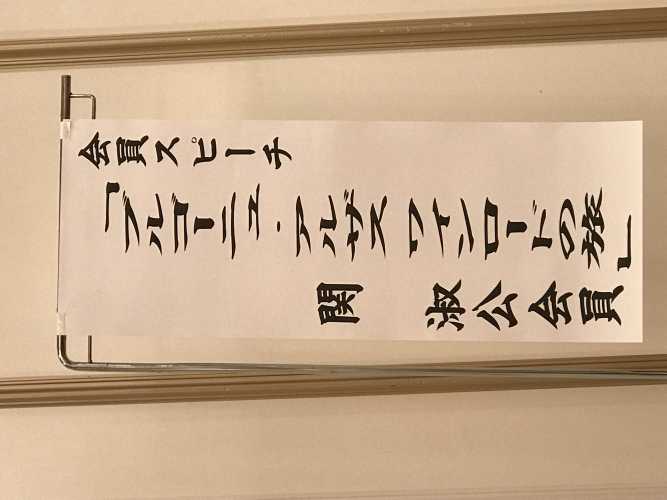 会員スピーチ
「ブルゴーニュ・アルザス ワインロードの旅」
関 淑公会員